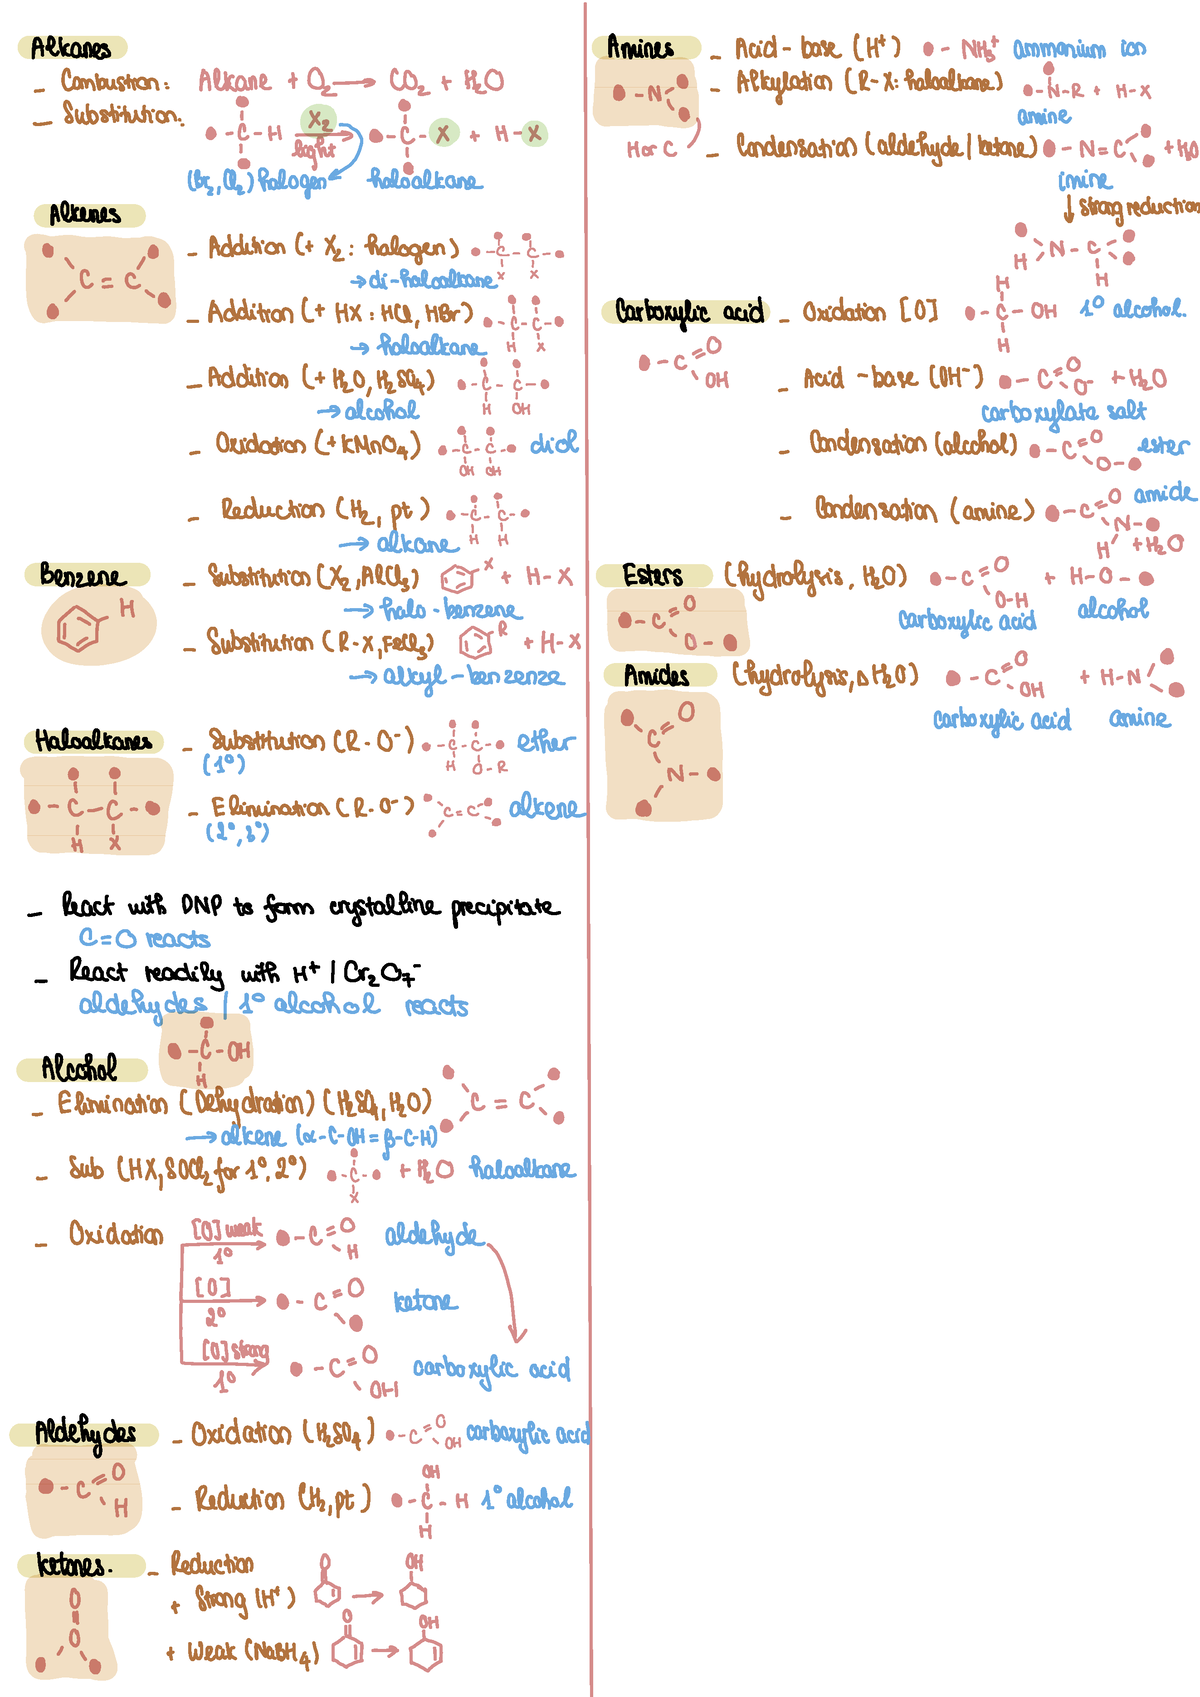 Alkanes
- Combustion: Alkane + O2 → CO2 + H2O
- Substitution:
C - H X2 light → C - X + H - X
(Br2, Cl2) halogen haloalkane
Alkenes
C = C
- Addition (+ X2 : halogen)
C - C
X X
→ di-haloalkane
- Addition (+ HX : HCl, HBr)
C - C
H X
→ haloalkane
- Addition (+ H2O, H2SO4)
C - C
H OH
→ alcohol
- Oxidation (+ KMnO4) C - C diol
OH OH
- Reduction (H2, pt) C - C
H H
→ alkane
Benzene
H
- Substitution (X2, AlCl3) X + H - X
→ halo - benzene
- Substitution (R - X, FeCl3) R + H - X
→ alkyl - benzenze
Haloalkanes
C - C
H X
- Substitution (R - O⁻) C - C ether
(1°) H O - R
- Elimination (R - O⁻) C = C alkene
(2°, 3°)
- React with DNP to form crystalline precipitate
C = O reacts
- React readily with H⁺ / Cr2O7⁻
aldehydes / 1° alcohol reacts
Alcohol
- C - OH
H
- Elimination (Dehydration) (H2SO4, H2O) C = C
→ alkene (α - C - OH = β - C - H)
- Sub (HX, SOCl2 for 1°, 2°) - C - + H2O haloalkane
X
- Oxidation
[O] weak 1° → - C = O H aldehyde
[O] 2° → - C = O ketone
[O] strong 1° → - C = O OH carboxylic acid
Aldehydes
- C = O
H
- Oxidation (H2SO4) - C = O OH carboxylic acid
- Reduction (H2, pt) OH
- C - H 1° alcohol
H
Ketones.
O
O
- Reduction
+ Strong (H⁺) O → OH
+ Weak (NaBH4) O → OH
Amines
- N
H or C
- Acid - base (H⁺) - NH3⁺ ammonium ion
- Alkylation (R - X : haloalkane) - N - R + H - X
amine
- Condensation (aldehyde / ketone) - N = C + H2O
imine
↓ strong reduction
N - C -
H H
Carboxylic acid
- C = O
OH
- Oxidation [O] H
- C - OH 1° alcohol.
H
- Acid - base (OH⁻) - C = O O⁻ + H2O
carboxylate salt
- Condensation (alcohol) - C = O O - ester
- Condensation (amine) - C = O amide
N -
H + H2O
Esters
- C = O
O -
(hydrolysis, H2O) - C = O O - H + H - O -
carboxylic acid alcohol
Amides
C = O
N -
(hydrolysis, Δ H2O) - C = O OH + H - N
carboxylic acid amine